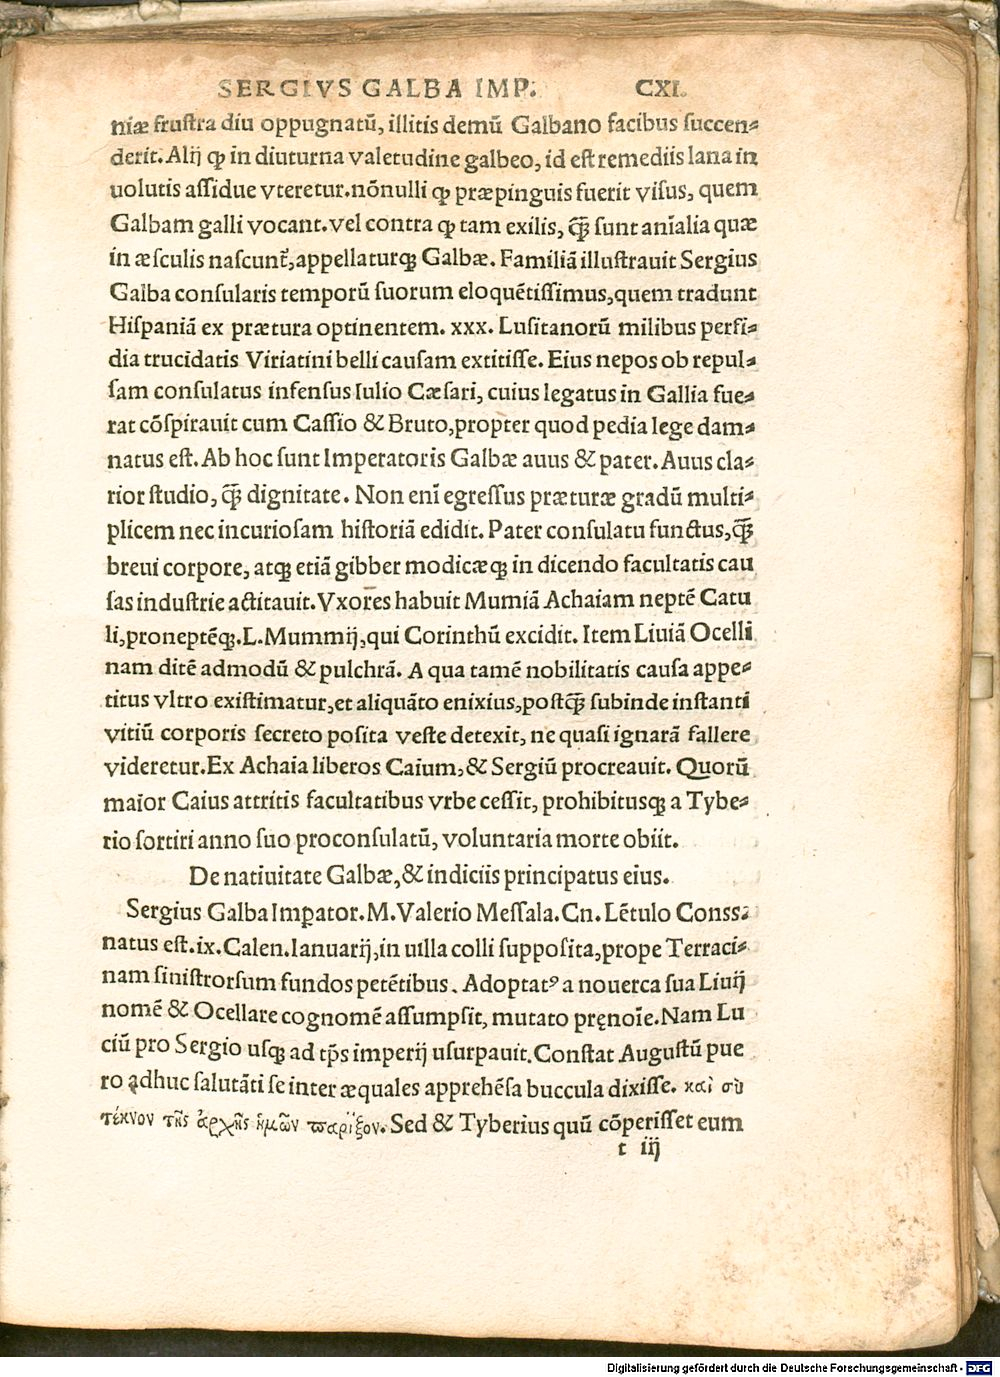 SERGIVS GALBA IMP. CXI.
niæ frustra diu oppugnatũ, illitis demũ Galbano facibus succen⸗
derit. Alij ꝙ in diuturna valetudine galbeo, id est remediis lana in
uolutis assidue vteretur. nõnulli ꝙ præpinguis fuerit visus, quem
Galbam galli vocant. vel contra ꝙ tam exilis, q̃ȝ sunt anĩalia quæ
in æsculis nascunt᷑, appellaturqȝ Galbæ. Familiã illustrauit Sergius
Galba consularis temporũ suorum eloquẽtissimus, quem tradunt
Hispaniã ex prætura optinentem. xxx. Lusitanorũ milibus perfi⸗
dia trucidatis Viriatini belli causam extitisse. Eius nepos ob repul⸗
sam consulatus infensus Iulio Cæsari, cuius legatus in Gallia fue⸗
rat cõspirauit cum Cassio & Bruto, propter quod pedia lege dam⸗
natus est. Ab hoc sunt Imperatoris Galbæ auus & pater. Auus cla⸗
rior studio, q̃ȝ dignitate. Non enĩ egressus præturæ gradũ multi⸗
plicem nec incuriosam historiã edidit. Pater consulatu functus, q̃ȝ
breui corpore, atqȝ etiã gibber modicæqȝ in dicendo facultatis cau
sas industrie actitauit. Vxores habuit Mumiã Achaiam neptẽ Catu
li, proneptẽqȝ. L. Mummij, qui Corinthũ excidit. Item Liuiã Ocelli
nam ditẽ admodũ & pulchrã. A qua tamẽ nobilitatis causa appe⸗
titus vltro existimatur, et aliquãto enixius, postq̃ȝ subinde instanti
vitiũ corporis secreto posita veste detexit, ne quasi ignarã fallere
videretur. Ex Achaia liberos Caium, & Sergiũ procreauit. Quorũ
maior Caius attritis facultatibus vrbe cessit, prohibitusqȝ a Tybe⸗
rio sortiri anno suo proconsulatũ, voluntaria morte obiit.
De natiuitate Galbæ, & indiciis principatus eius.
Sergius Galba Imꝑator. M. Valerio Messala. Cn. Lẽtulo Conss.
natus est. ix. Calen. Ianuarij, in uilla colli supposita, prope Terraci⸗
nam sinistrorsum fundos petẽtibus. Adoptatꝰ a nouerca sua Liuij
nomẽ & Ocellare cognomẽ assumpsit, mutato pręnoĩe. Nam Lu
ciũ pro Sergio usqȝ ad tp̃s imperij usurpauit. Constat Augustũ pue
ro adhuc salutãti se inter æquales apprehẽsa buccula dixisse. καὶ σὺ
τέκνον τῆς ἀρχῆς ἡμῶν παρίξον. Sed & Tyberius quũ cõperisset eum
t iij
Digitalisierung gefördert durch die Deutsche Forschungsgemeinschaft - DFG